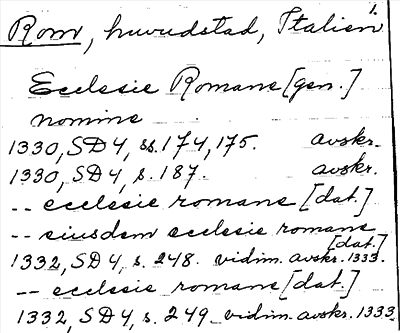 1.
Rom, huvudstad, Italien
Ecclesie Romane [gen.]
nomine
1330, SD4, ss. 174, 175. avskr.
1330, SD4, s. 187. avskr.
-- ecclesie romane [dat.]
-- eiusdem ecclesie romane
[dat.]
1332, SD4, s. 248. vidim. avskr. 1333.
-- ecclesie romane [dat.]
1332, SD4, s. 249. vidim. avskr. 1333